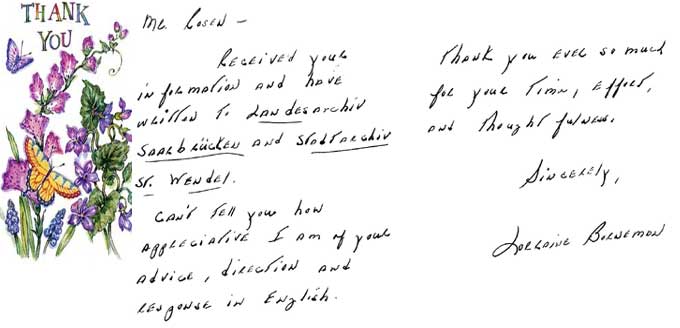 THANK
YOU
Mr. Rosen –
Received your
information and have
written to Landesarchiv
Saarbrücken and Stadtarchiv
St. Wendel.
Can't tell you how
appreciative I am of your
advice, direction and
response in English.
Thank you ever so much
for your time, effort,
and thoughtfulness.
Sincerely,
Lorraine Borneman